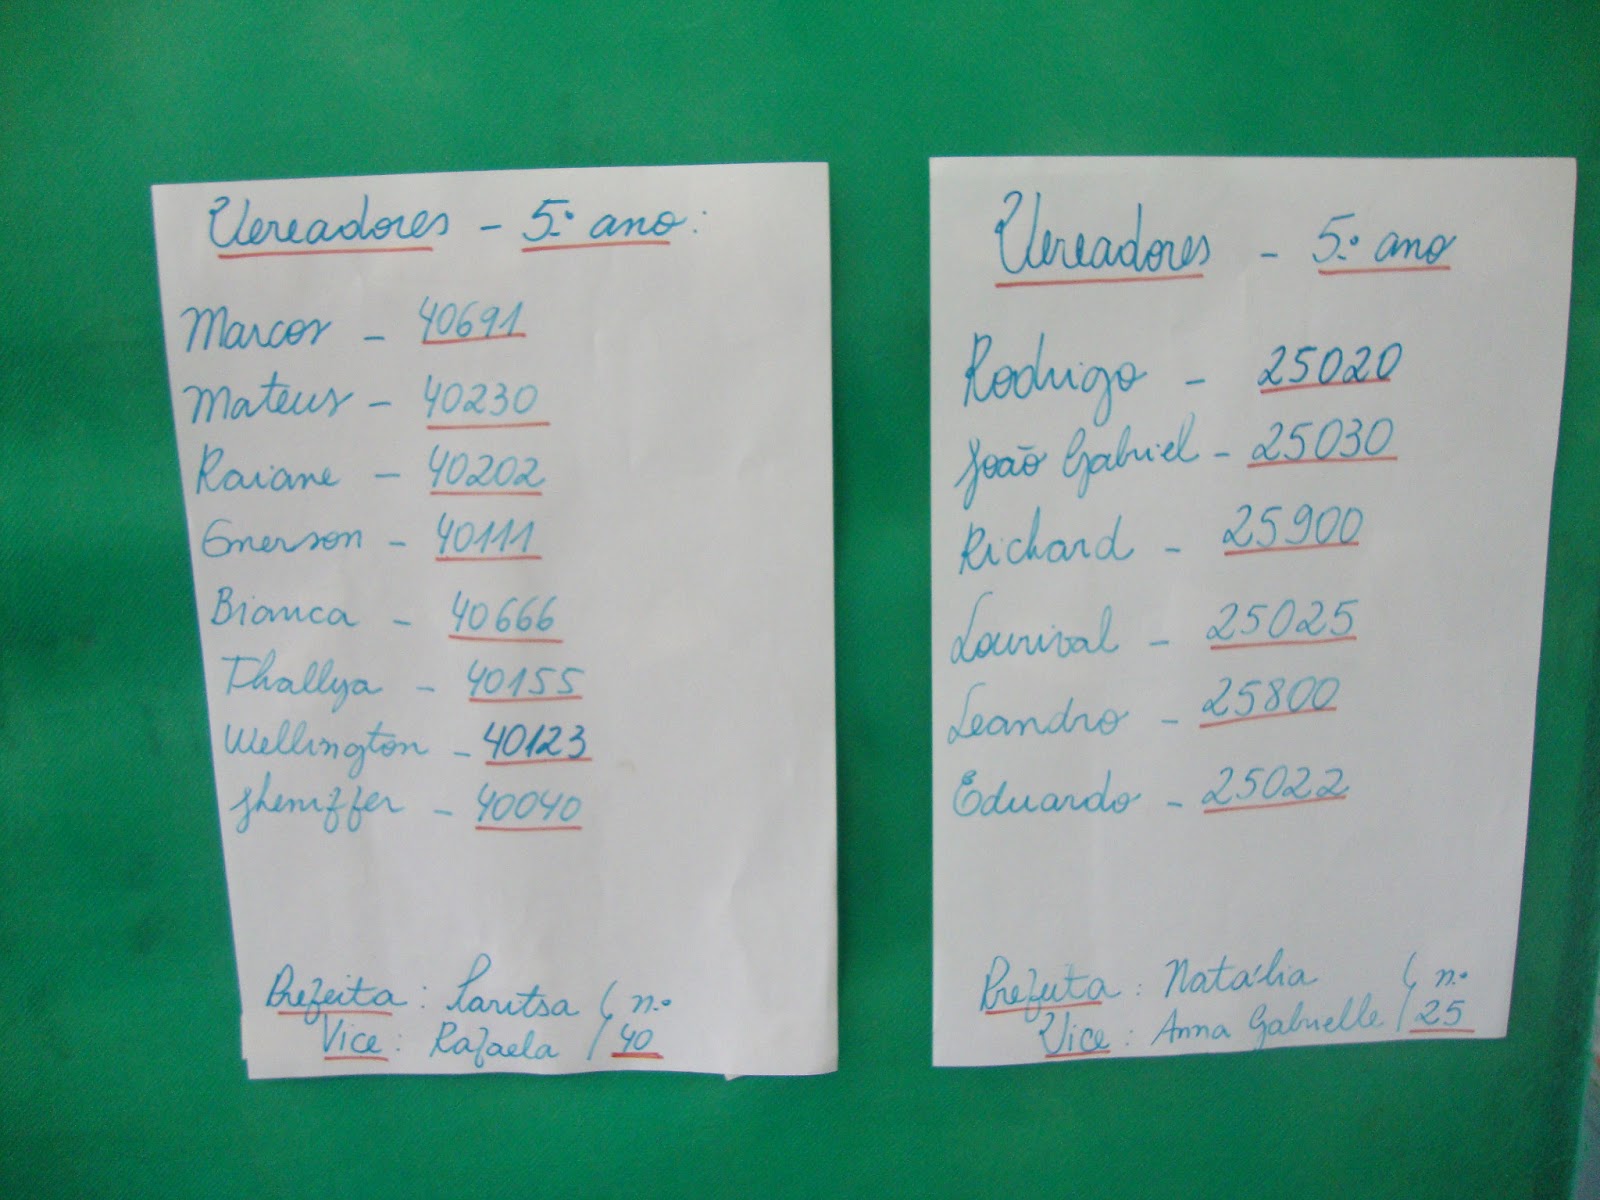 Vereadores - 5º ano:
Marcos - 40691
Mateus - 40230
Raiane - 40202
Emerson - 40111
Bianca - 40666
Thallya - 40155
Wellington - 40123
Jheniffer - 40040
Prefeita: Laritsa / nº
Vice: Rafaela / 40
Vereadores - 5º ano
Rodrigo - 25020
João Gabriel - 25030
Richard - 25900
Lourival - 25025
Leandro - 25800
Eduardo - 25022
Prefeita: Natália / nº
Vice: Anna Gabrielle / 25